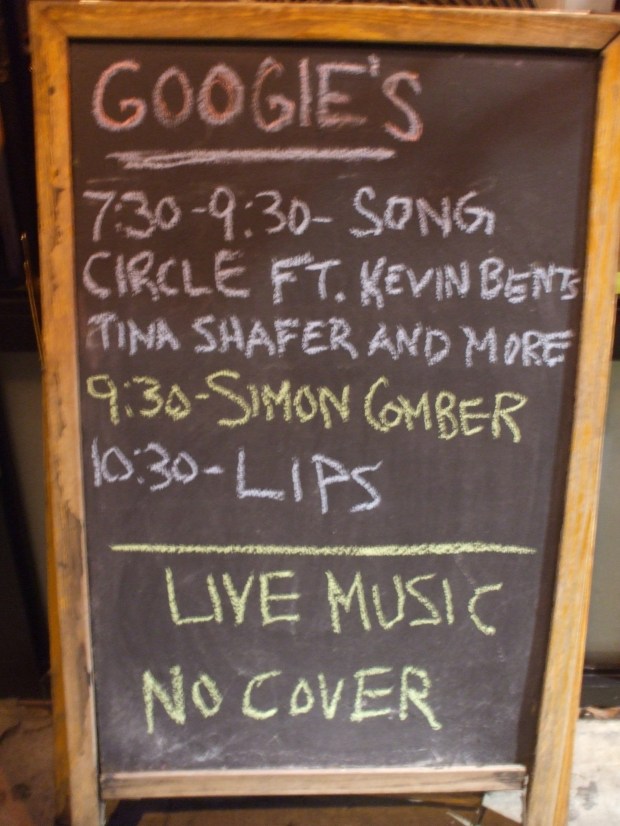 GOOGIE'S
7:30-9:30- SONG
CIRCLE FT. KEVIN BENTS
TINA SHAFER AND MORE
9:30-SIMON COMBER
10:30-LIPS
LIVE MUSIC
NO COVER